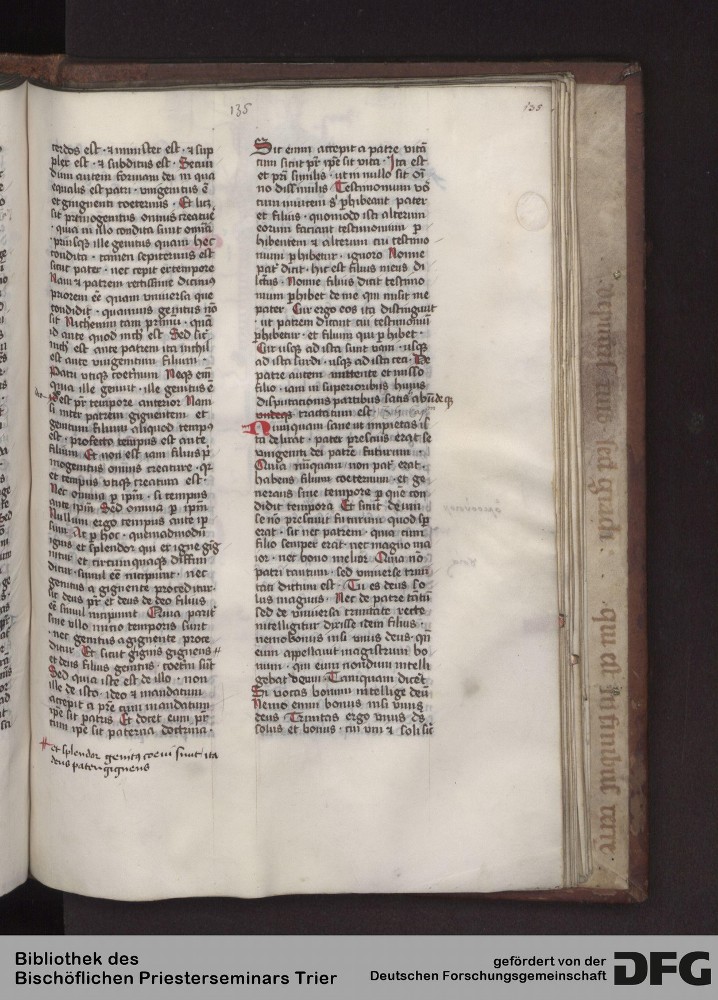 135
135
cerdos est · ⁊ minister est · ⁊ sup
plex est · ⁊ subditus est · Secun
dum autem formam dei in qua
equalis est patri · vnigenitus ē
et gignenti coeternus · Et licꝫ
sit primogenitus omnis creature
· quia in illo condita sunt omīa
· priusqꝫ ille genitus quam hec
condita · tamen sepiternus est
sicut pater · nec cepit ex tempore
Nam ⁊ patrem rectissime dicimꝰ
priorem eē quam vniuersa que
condidit · quamuis genitus nō
sit Nichenim tam primū · quā
id ante quod nich est Sed sic
nich est ante patrem ita nichil
est ante vnigenitum filium ·
Patri vtiqꝫ coeternum Neqꝫ em̄
quia ille genuit · ille genitus ē
est pr̄ tempore anterior Nam
si inter patrem gignentem et
genitum filium aliquod tempꝰ
est · profecto tempus est ante
filium Et non est iam filius p̄
mogenitus omnis creature · qr
et tempus vtiqꝫ creatura est ·
Nec omnia ꝑ ip̄m · si tempus
ante ip̄m Sed omnia ꝑ ip̄m
Nullum ergo tempus ante ip
sum Ac ꝑ hoc · quemadmodū
ignis et splendor qui ex igne gig
nitur et circumquaqꝫ diffun
ditur · simul eē incipiunt · nec
genitus a gignente proceditur ·
sic deus pr̄ et deus de deo filius
eē simul incipiunt Quia pariter
sine vllo inicio temporis sunt
· nec genitus a gignente prece
ditur Et sicut gignis gignens
et deus filius genitus · coet̄ni sūt
Sed quia iste est de illo · non
ille de isto · ideo ⁊ mandatum
accepit a pr̄e cum mandatum
ip̄e sit patris Et docet eum pr̄
cum ip̄e sit paterna doctrina ·
et splendor genitꝰ coeui sunt ita
deus pater gignens
Sic enim accepit a patre vitā
cum sicut pr̄ ip̄e sit vita · Ita est
et pr̄i similis · ut in nullo sit oī
no dissimilis Testimonium vō
cum inuicem sꝰ phibeant pater
et filius · quomodo ista alterum
eorum faciant testimonium ꝑ
hibentem ⁊ alterum cui testimo
nium ꝑhibetur · ignoro Nonne
pat̄ dicit · hic est filius meus di
lc̄tus · Nonne filius dicit testimo
nium ꝑhibet de me qui misit me
pater Cur ergo eos ita distinguit
· ut patrem dicant cui testimoniū
ꝑhibetur · et filium qui ꝑhibet ·
Cur usqꝫ ad ista sunt · usqꝫ
ad ista surdi · usqꝫ ad ista ceci · De
patre autem mittente et misso
filio · iam in superioribus huius
disputacionis partibus satis abūdeqꝫ
tractatum est ·
Numquam sane ut impietas is
ta delirat · pater prescius erat se
vnigeniti dei patrē futurum ·
Quia nūquam non pat̄ erat ·
habens filium coeternum · et ge
nerans sine tempore ꝑ que con
didit tempora Et sicut deum
se nō presciuit futurum quod sꝑ
erat · sic nec patrem · quia cum
filio semper erat · nec magno ma
ior · nec bono melior Quia nō
patri tantum · sed vniuerse trini
tati dictum est · Tu es deus so
lus magnus · Nec de patre tātū
sed de vniuersa trinitate recte
intelligitur dixisse idem filius ·
nemo bonus nisi vnus deus · qn̄
eum appellauit magistrum bo
num · qui eum nondum intelli
gebat deum · Tamquam dicet̄
Si vocas bonum intellige deū
Nemo enim bonus nisi vnus
deus · Trinitas ergo vnus d̄s
solus et bonus · cui vni ⁊ soli sic̄
Bibliothek des
Bischöflichen Priesterseminars Trier
gefördert von der
Deutschen Forschungsgemeinschaft
DFG